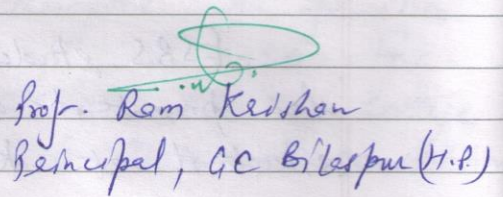 Prof. Ram Krishan
Principal, GC Bilaspur (H.P.)